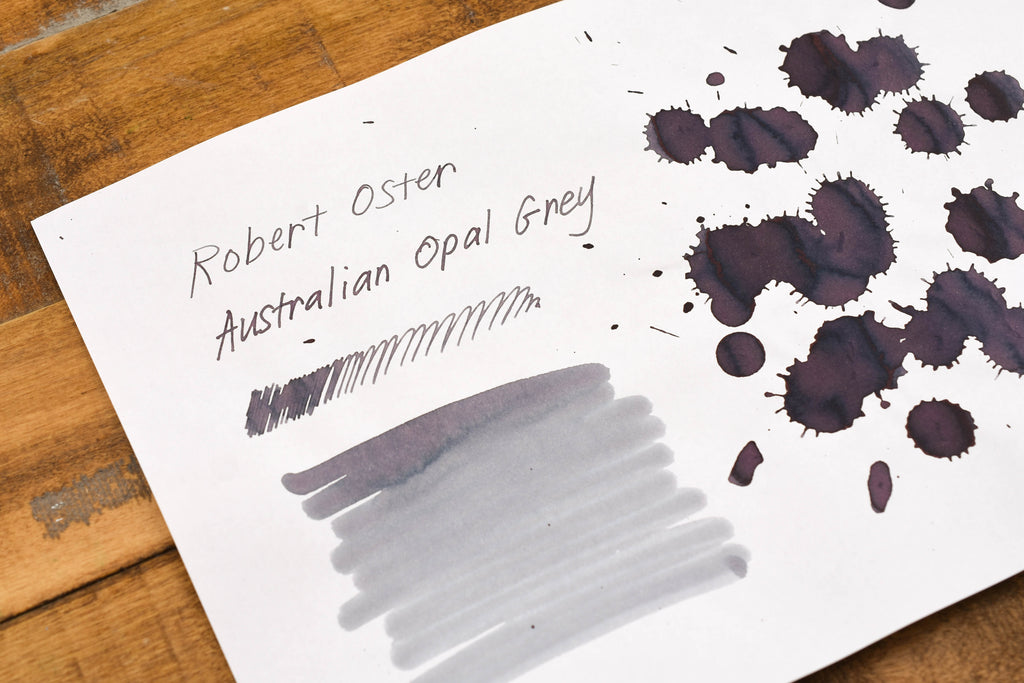 Robert Oster
Australian Opal Grey